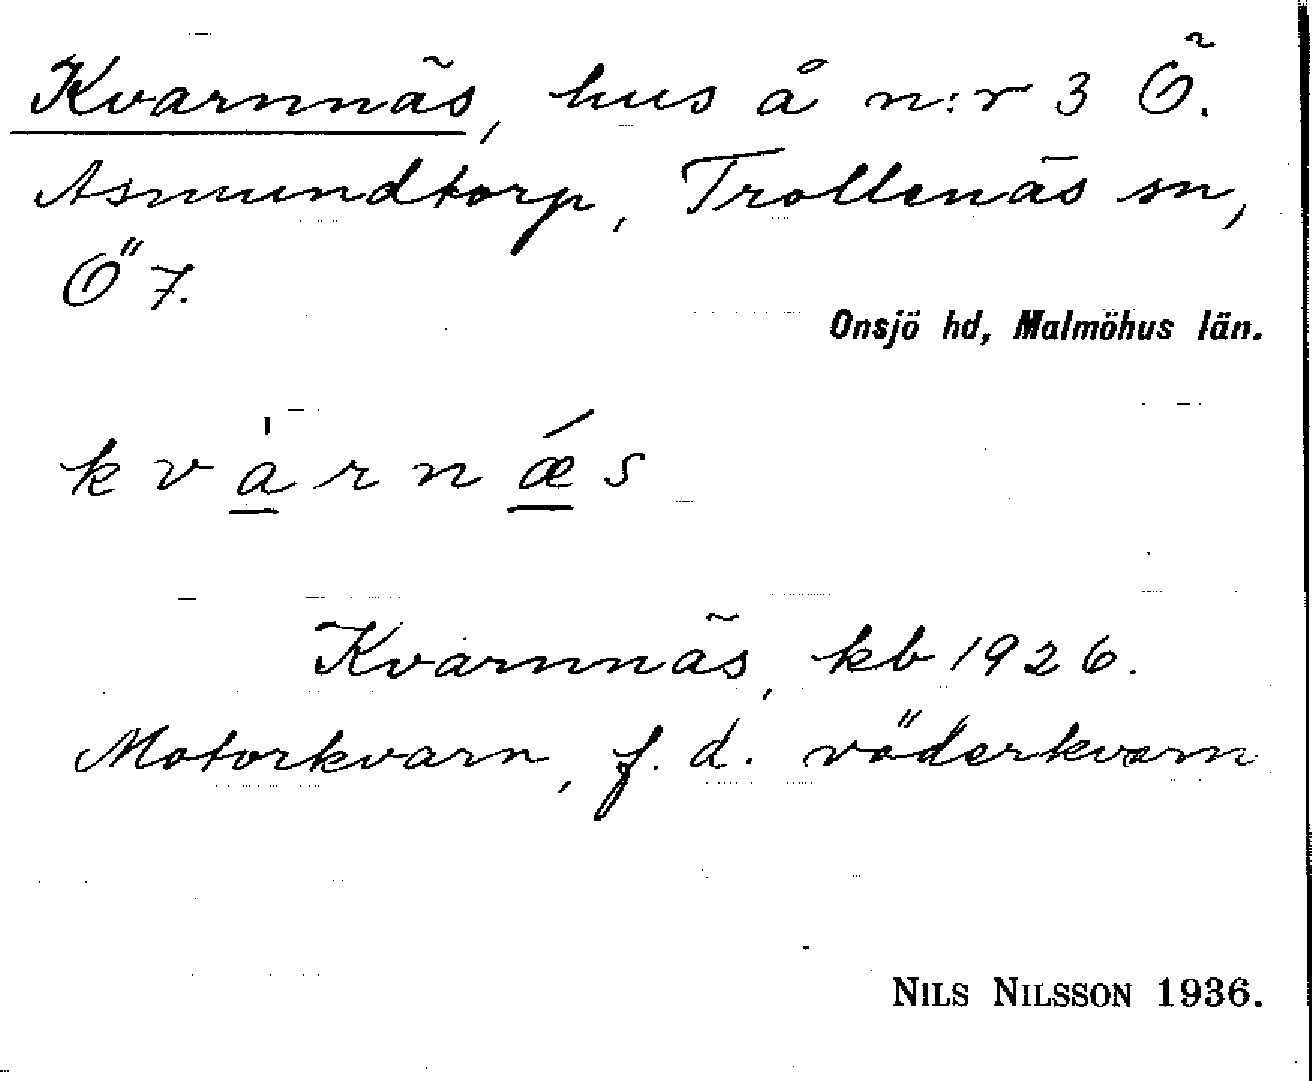 Kvarnnäs, hus å n:r 3 Ö.
Asmundtorp, Trollenäs sn,
Ö 7.
Onsjö hd, Malmöhus län.
kvàrnǽs
Kvarnnäs, kb 1926.
Motorkvarn, f. d. väderkvarn
NILS NILSSON 1936.